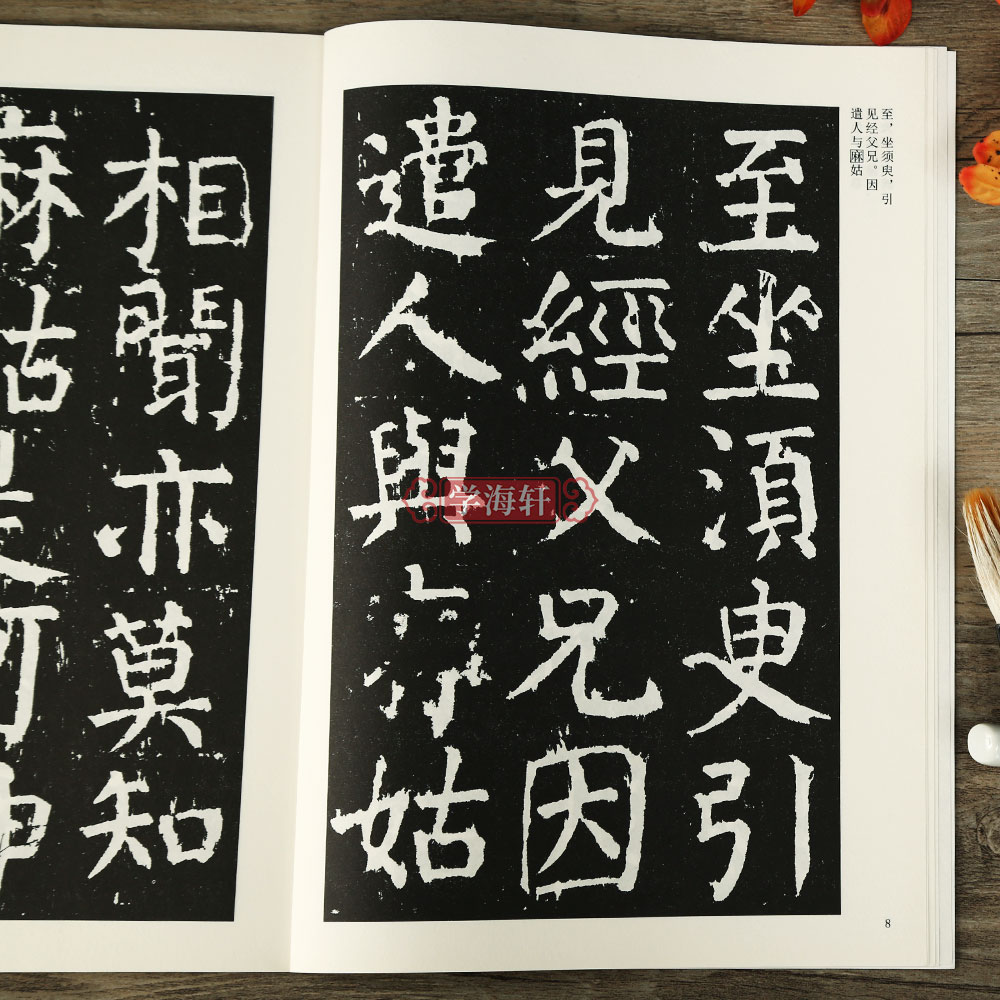 至，坐须臾，引
见经父兄。因
遣人与麻姑
至坐須臾引
見經父兄因
遣人與姑
学海轩
8
相聞亦莫知
麻